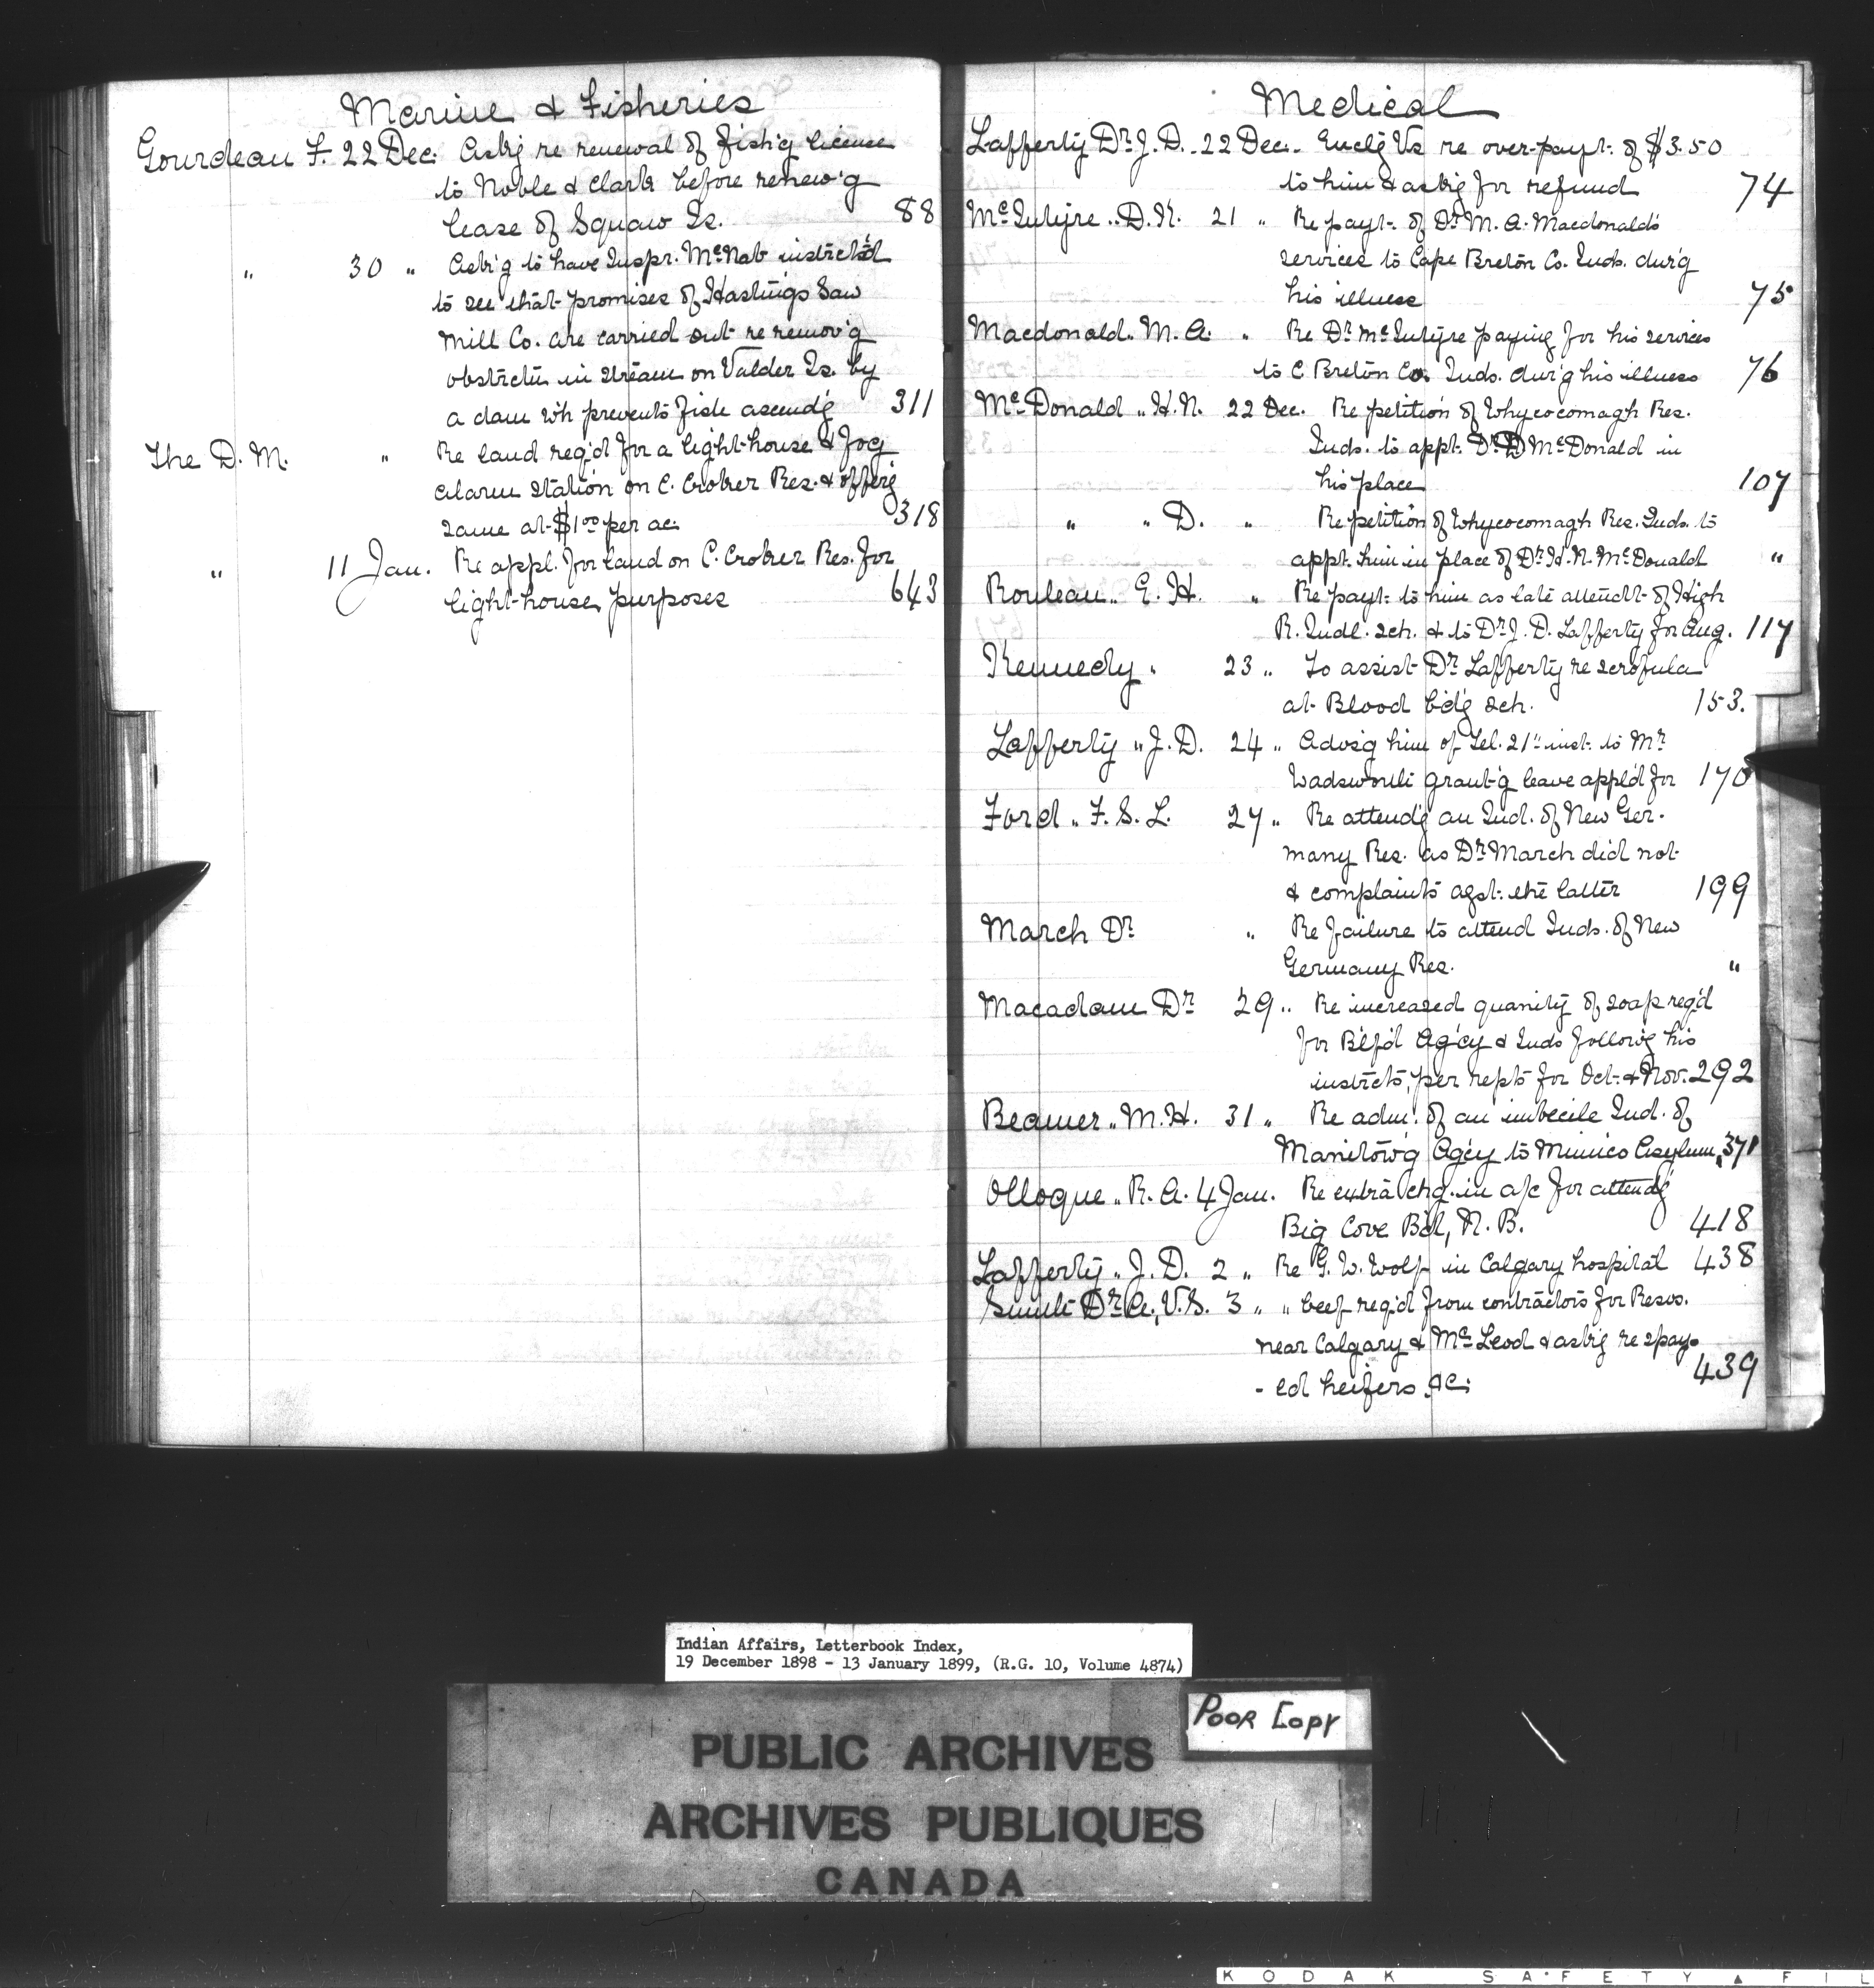 Marine & Fisheries
Gourdeau F. 22 Dec. Ask'g re renewal of fish'g license
to Noble & Clark before renew'g
lease of Squaw Is. 88
" 30 " Ask'g to have Inspr. McNab instrct'd
to see that promises of Hastings Saw
Mill Co. are carried out re remov'g
obstrctn in stream on Valdez Is. by
a dam wh prevents fish ascend'g 311
The D. M. " Re land req'd for a light-house & fog
alarm station on C. Croker Res. & offer'g
same at $1.00 per ac. 318
" 11 Jan. Re appl. for land on C. Croker Res. for
light-house purposes 643
Medical
Lafferty Dr. J. D. 22 Dec. Encl'g Vs re over-payt. of $3.50
to him & ask'g for refund 74
McIntyre " D. K. 21 " Re payt. of Dr. M. A. Macdonald's
services to Cape Breton Co. Inds. dur'g
his illness 75
Macdonald " M. A. " Re Dr. McIntyre paying for his services
to C. Breton Co. Inds. dur'g his illness 76
McDonald " H. N. 22 Dec. Re petition of Whycocomagh Res.
Inds. to appt. Dr. D McDonald in
his place 107
" " D. " Re petition of Whycocomagh Res. Inds. to
appt. him in place of Dr. H. N. McDonald "
Rouleau " E. H. " Re payt. to him as late attendt. of High
R. Indl. sch. & to Dr. J. D. Lafferty for Aug. 117
Kennedy " 23 " To assist Dr. Lafferty re scrofula
at Blood b'd'g sch. 153.
Lafferty " J. D. 24 " Advs'g him of tel. 21" inst. to Mr.
Wadsworth grant'g leave appl'd for 170
Ford " F. S. L. 27 " Re attend'g an Ind. of New Ger-
many Res. as Dr. March did not
& complaints agst. the latter 199
March Dr. " Re failure to attend Inds. of New
Germany Res. "
Macadam Dr. 29 " Re increased quanity of soap req'd
for B'lf'd Ag'cy & Inds follow'g his
instrcts, per repts for Oct. & Nov. 292
Beamer " M. H. 31 " Re adm. of an imbecile Ind. of
Manitow'g Ag'cy to Mimico Asylum, 371
Olloque " R. A. 4 Jan. Re extra chg. in a/c for attend'g
Big Cove Bd, N. B. 418
Lafferty " J. D. 2 " Re G. W. Wolf in Calgary hospital 438
Smith Dr. A., V. S. 3 " " beef req'd from contractors for Resvs.
near Calgary & McLeod & ask'g re spay-
- ed heifers &c. 439
Indian Affairs, Letterbook Index,
19 December 1898 - 13 January 1899, (R.G. 10, Volume 4874)
POOR COPY
PUBLIC ARCHIVES
ARCHIVES PUBLIQUES
CANADA
KODAK SAFETY ▲ FIL